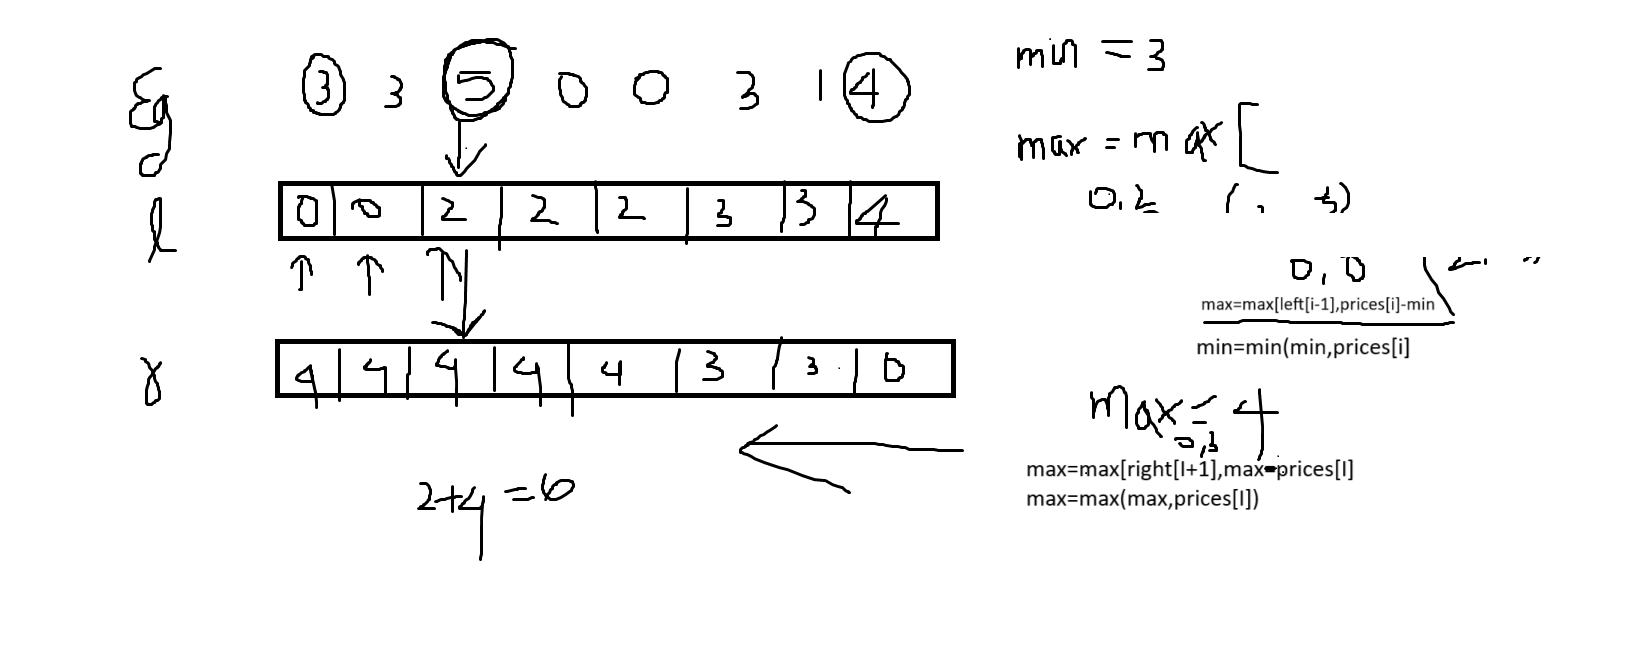 Eg 3 3 5 0 0 3 1 4
l 0 0 2 2 2 3 3 4
r 4 4 4 4 4 3 3 0
2+4 =6
min = 3
max = max [
0,2
0,0
max=max[left[i-1],prices[i]-min
min=min(min,prices[i]
max = 4
0,3
max=max[right[I+1],max-prices[I]
max=max(max,prices[I])